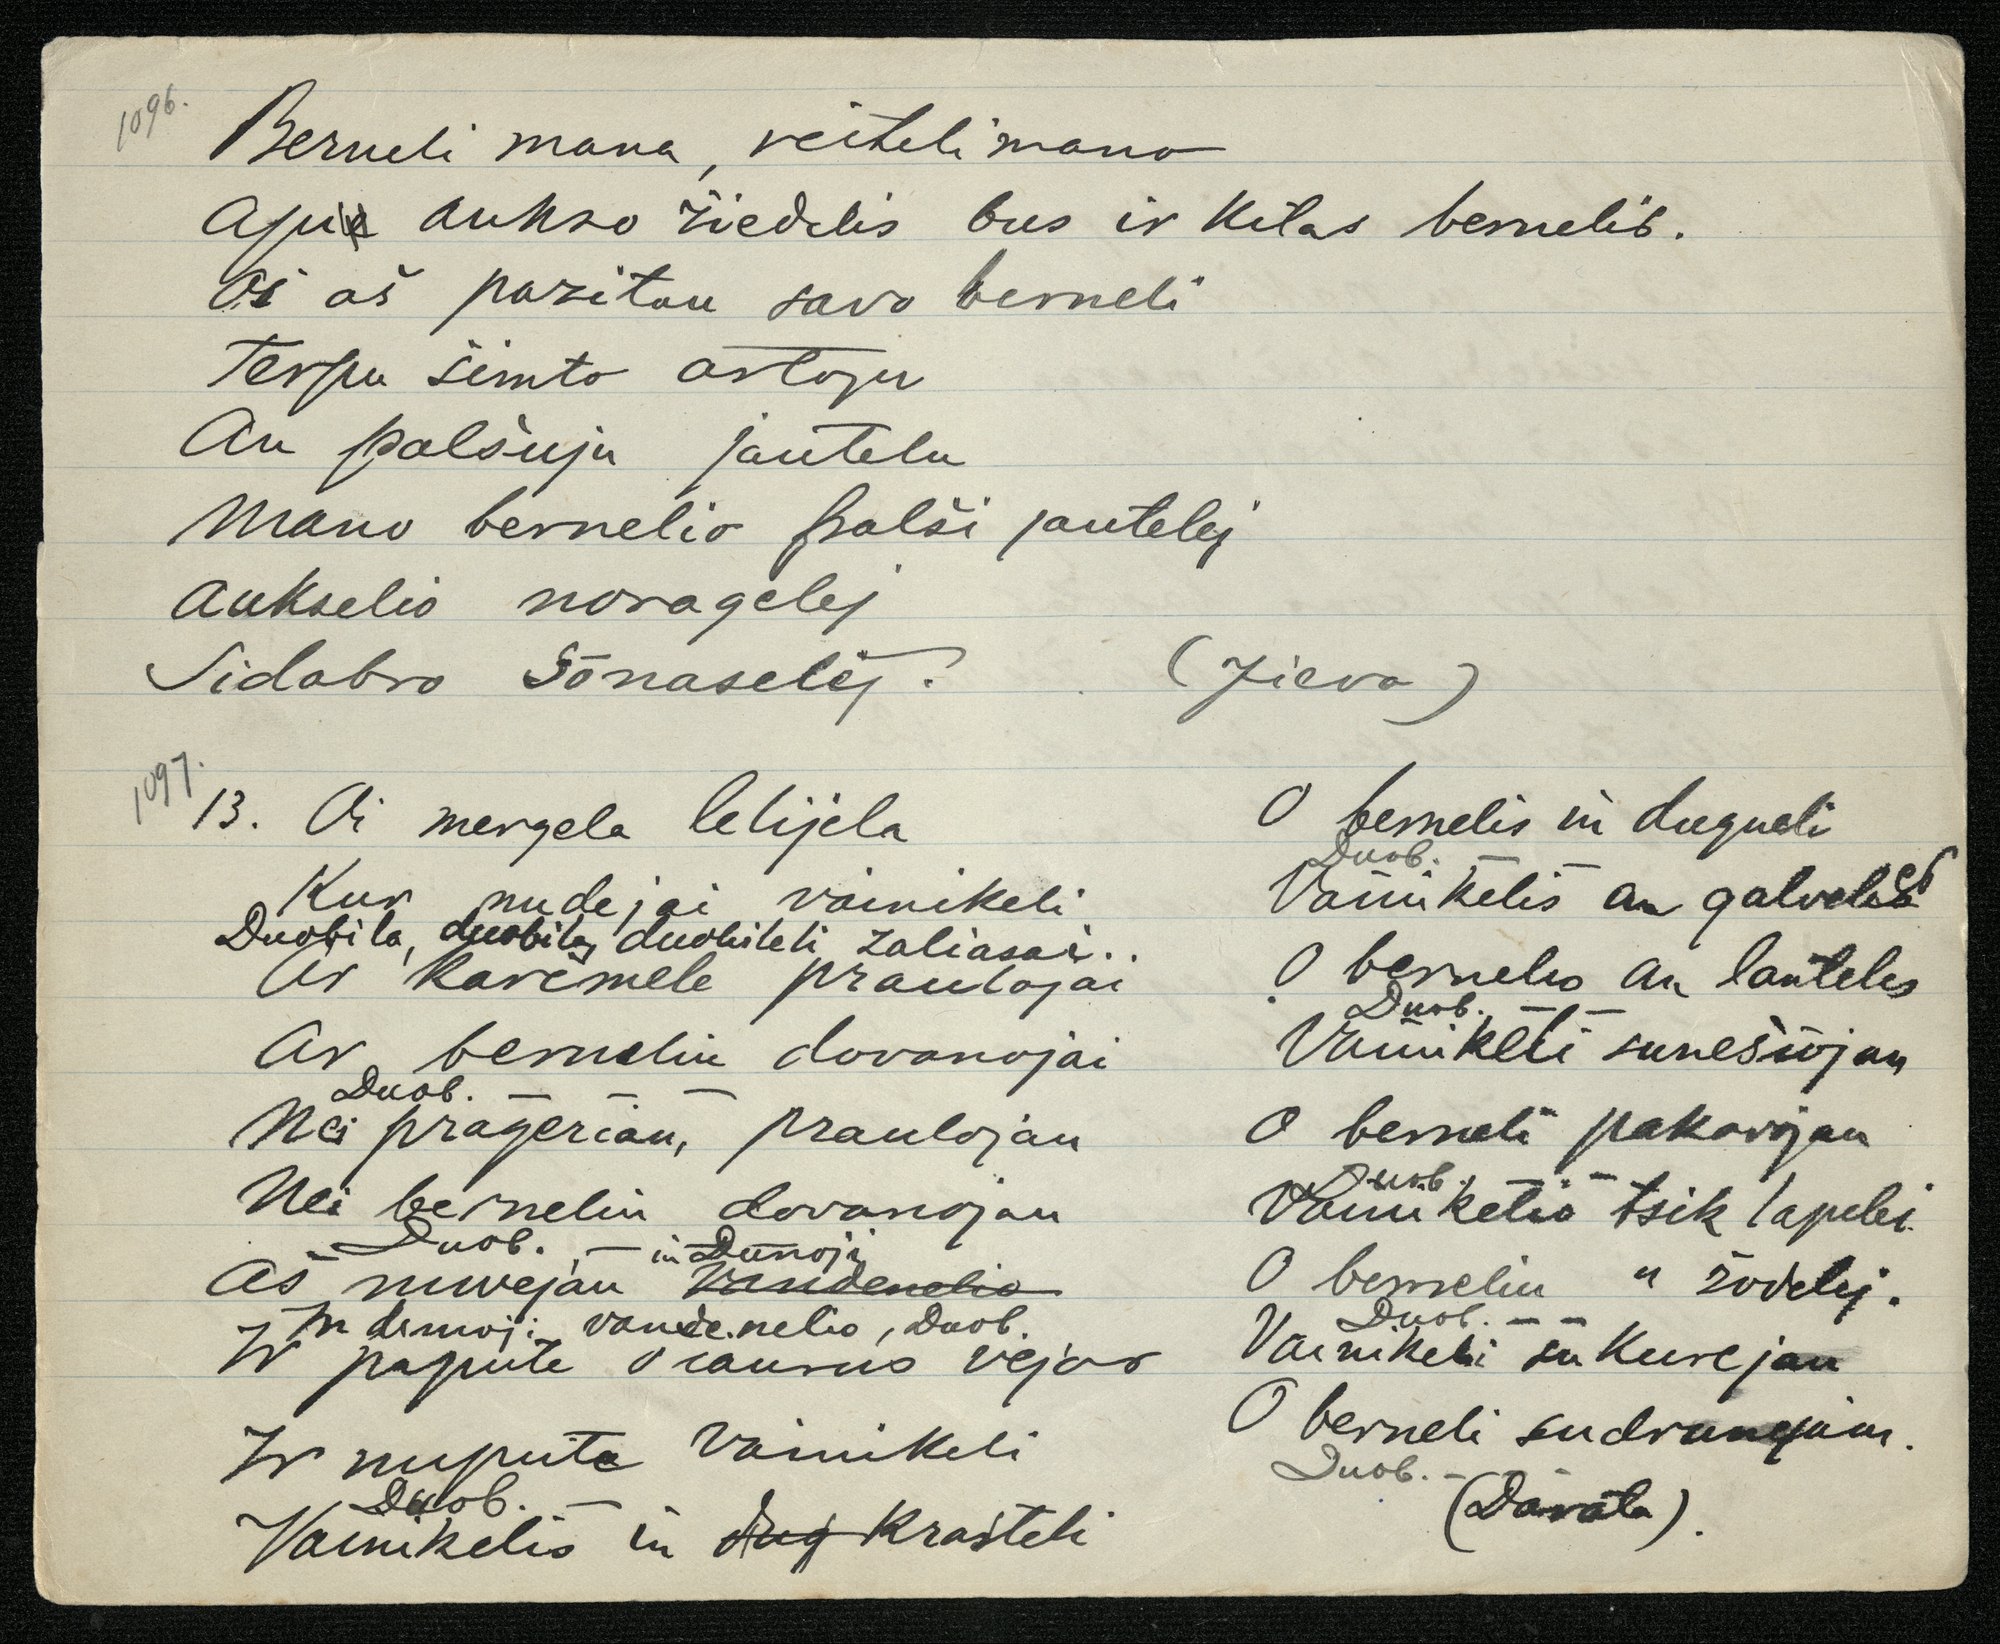 1096.
Berneli mana, veiteli mano
Apie aukso žiedelis bus ir kitas bernelis.
Oi aš pazitau savo berneli
Terpu šimto artoju
An palšuju jautelu
Mano bernelio palši jautelej
Aukselio noragelej
Sidabro šōnaselej.
(Jieva)
1097.
13. Oi mergela lelijela
Kur nudejai vainikeli
Duobila, duobila, duobileli zaliasai..
Ar karčmele praulojai
Ar berneliu dovanojai
Duob. — — —
Nei prageriau, praulojau
Nei berneliu dovanojau
Duob. — in Dunoji
Aš nuvejau vandenelio
In dunoji vandenelio, Duob.
Ir papute šiaurus vejas
Ir nupute vainikeli
Duob. —
Vainikelis in dug krašteli
O bernelis in dugneli
Duob. — —
Vainikelis an galveles
O bernelis an lanteles
Duob. — —
Vainikeli sunešiojau
O berneli pakavojau
Duob. — —
Vainikelio tsik lapelei
O berneliu " žodelej.
Duob. — —
Vainikeli sukurejau
O berneli sudraugavau.
Duob. — —
(Darata).